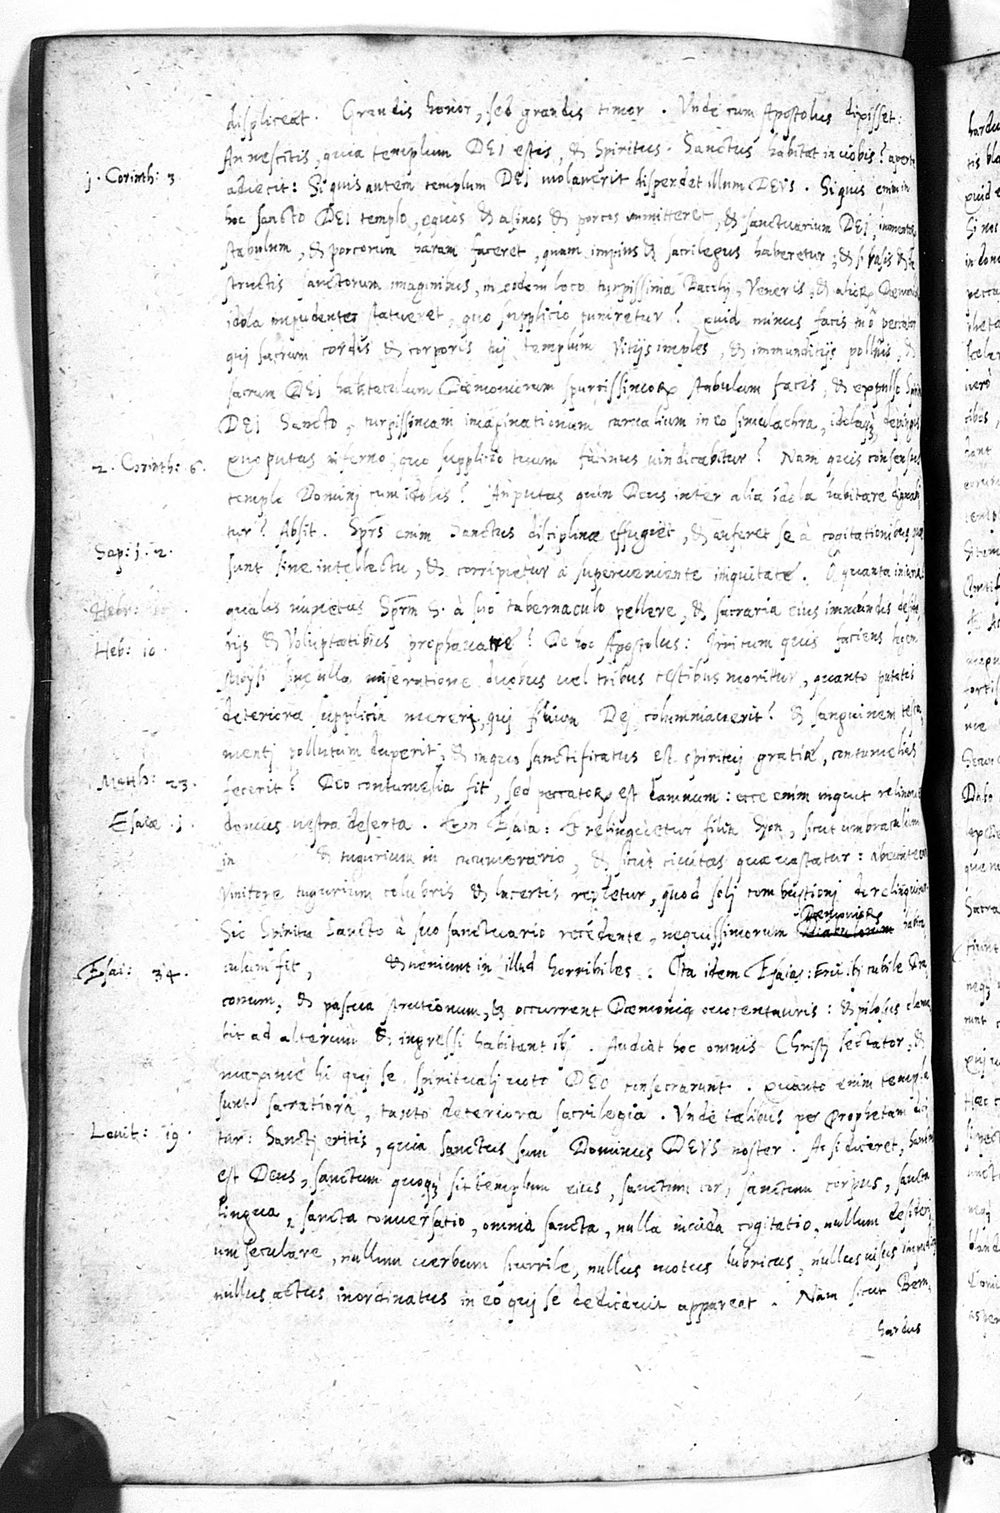 displiceat. Grandis honor, sed grandis timor. Vnde cum Apostolus dixisset:
An nescitis, quia templum DEI estis, & Spiritus Sanctus habitat in vobis? aperte
1. Corinth: 3
adiecit: Si quis autem templum DEI violaverit disperdet illum DEVS. Si quis enim in
hoc sancto DEI templo, equos & asinos & porcos immitteret, & sanctuarium DEI,
stabulum, & porcorum haram faceret, quam impius & sacrilegus haberetur, & si
structis sanctorum imaginibus, in eodem loco turpissima Bacchi, Veneris, &
idola impudenter statueret, quo supplicio puniretur? Quid minus facis
qui sacrum cordis & corporis tui templum vitijs imples, & immunditijs polluis, &
sacrum DEI habitaculum Dæmoniorum spurcissimorum stabulum facis, & expulso
DEI Sancto, turpissimam imaginationum carnalium in eo simulachra, idolaque depingis
2. Corinth: 6.
quo putas inferno, quo supplicio tuum facinus vindicabitur? Nam quis consensus
templo Domini cum idolis? An putas quin Deus inter alia idola habitare
tur? Absit. Sp̃rs enim Sanctus disciplinæ effugiet, & auferet se à cogitationibus quæ
Sap: 1. 2.
sunt sine intellectu, & corripietur à superveniente iniquitate. O quanta
Hebr: 10
qualis nunctus Sp̃rm S. à suo tabernaculo pellere, & sacraria eius immundis
rijs & Voluptatibus prophanare? De hoc Apostolus: Irritum quis faciens legem
Heb: 10.
Moysi sine ulla miseratione duobus vel tribus testibus moritur, quanto putatis
deteriora supplicia mereri, qui filium Dei columniaverit? & sanguinem testa
menti pollutum duxerit, & in quo sanctificatus est spiritui gratiæ, contumelias
Matth: 23.
fecerit? Deo contumelia fit, sed peccatorum est damnum: ecce enim inquit relinquetur
Esaiæ. 1.
domus vestra deserta. Et in Esaia: Et relinquetur filia Syon, sicut umbraculum
in & tugurium in cucumerario, & sicut civitas quæ vastatur: abeunte
vinitore tugurium colubris & lacertis repletur, quod soli combustioni derelinquitur
Dæmoniorum
Sic Spiritu Sancto à suo sanctuario recedente, nequissimorum Diabulorum
Esai: 34.
culum fit, & veniunt in illud horribiles. Ita idem Esaias: Erit ibi cubile Dra
conum, & pascua strutionum, & occurrent Dæmonia onocentauris: & pilosus clama
bit ad alterum & ingressi habitant ibi. Audiat hoc omnis Christi sectator, &
maxime hi qui se spirituali voto DEO consecrarunt. Quanto enim templa
sunt sacratiora, tanto deteriora sacrilegia. Vnde talibus per Prophetam
Levit: 19.
tur: Sancti eritis, quia sanctus sum Dominus DEVS noster. Ac si diceret, sanctus
est Deus, sanctum quoque sit templum eius, sanctum cor, sanctum corpus, sancta
lingua, sancta conversatio, omnia sancta, nulla cogitatio, nullum desideri
um seculare, nullum verbum scurrile, nullus motus lubricus, nullus visus
nullus actus inordinatus in eo qui se dedicavit appareat. Nam sicut Bern
hardus